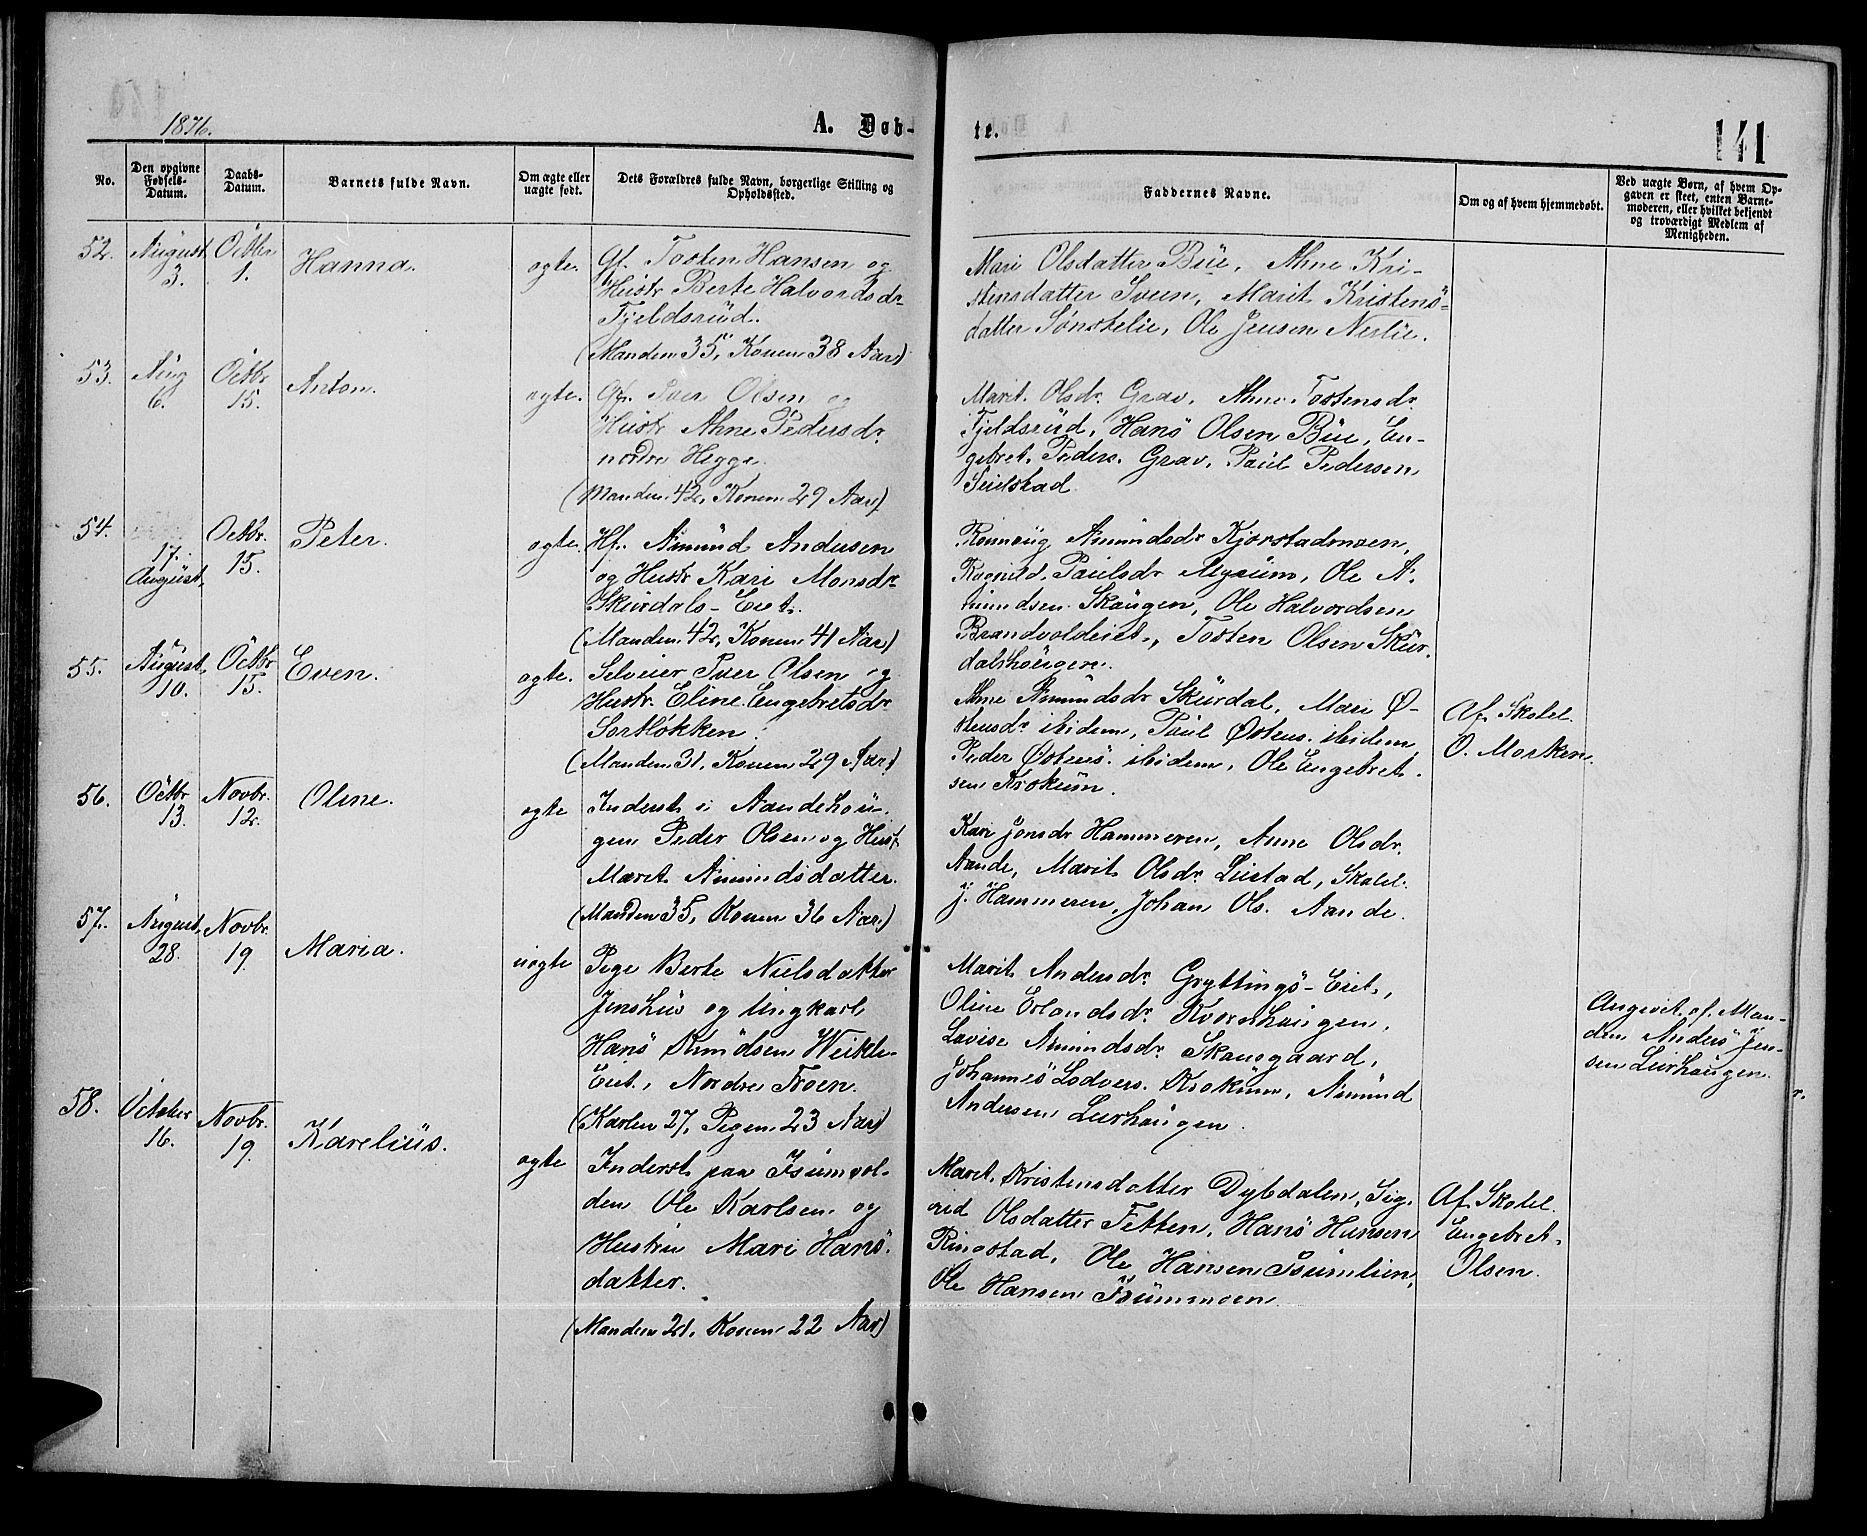 1876.
A. Døb-
te.
141
No.
Den opgivne
Fødsels-
Datum.
Daabs-
Datum.
Barnets fulde Navn.
Om ægte eller
uægte født.
Dets Forældres fulde Navn, borgerlige Stilling og
Opholdssted.
Faddernes Navne.
Om og af hvem hjemmedøbt.
Ved uægte Børn, af hvem Op-
gaven er skeet, enten Barne-
moderen, eller hvilket bekjendt
og troværdigt Medlem af
Menigheden.
52.
August
3.
Octbr.
1.
Hanna.
ægte.
Gf. Tosten Hansen og
Hustr Berte Halvordsdr
Fjeldsrud.
(Manden 35, Konen 38 Aar)
Mari Olsdatter Bue, Ahne Kri-
stensdatter Sveen, Marit Kristens-
datter Sønstelie, Ole Jensen Nerlie.
53.
Aug
6.
Octbr
15.
Anton.
ægte.
Gf. Iver Olsen og
Hustr Ahne Pedersdr.
nordre Hegge.
(Manden 42, Konen 29 Aar)
Marit Olsdr. Grav, Ahne Tostensdr.
Fjeldsrud, Hans Olsen Bue, En-
gebret Peders. Grav, Paul Pedersen
Seielstad
54.
17.
August,
Octbr.
15.
Peter.
ægte.
Hf. Amund Andersen
og Hustr Kari Monsdr
Skurdals-Eiet.
(Manden 42, Konen 41 Aar)
Rønnaug Amundsdr Kjørstadmoen,
Ragnild Paulsdr Myrum, Ole A-
mundsen Skaugen, Ole Halvordsen
Brandvoldeiet, Tosten Olsen Skur-
dalshaugen.
55.
August
10.
Octbr
15.
Even.
ægte.
Selveier Iver Olsen og
Hustr. Eline Engebretsdr
Sortløkken.
(Manden 31, Konen 29 Aar)
Ahne Amundsdr Skurdal, Mari Ø-
stensdr ibidem, Paul Østens. ibidem,
Peder Østens. ibidem, Ole Engebret-
sen Krokum.
Af Skolel.
O. Morken.
56.
Octbr
13.
Novbr.
12.
Oline.
ægte
Inderst i Aandehau-
gen Peder Olsen og Hust
Marit Amundsdatter.
(Manden 35, Konen 36 Aar)
Kari Jonsdr Hammeren, Anne Olsdr.
Aande, Marit Olsdr. Listad, Skolel.
J. Hammeren, Johan Ols. Aande.
57.
August,
28.
Novbr.
19.
Maria.
uægte
Pige Berte Nielsdatter
Jenshus og Ungkarl
Hans Knudsen Weikle-
Eiet, Nordre Froen.
(Karlen 27, Pigen 23 Aar)
Marit Andersdr. Gryttings-Eiet,
Oline Erlandsdr. Kvernhaugen,
Lovise Amundsdr. Skansgaard,
Johannes Lodvers. Krokum, Amund
Andersen Leirhaugen.
Angivet af Man-
den Anders Jen-
sen Leirhaugen.
58.
October
16.
Novbr.
19.
Karelius.
ægte
Inderst paa Isumvol-
den Ole Karlsen og
Hustru Mari Hans-
datter.
(Manden 21, Konen 22 Aar)
Marit Kristensdatter Dybdalen, Sig-
rid Olsdatter Fetten, Hans Hansen
Ringstad, Ole Hansen Isumlien,
Ole Hansen Isummoen.
Af Skolel.
Engebret
Olsen.